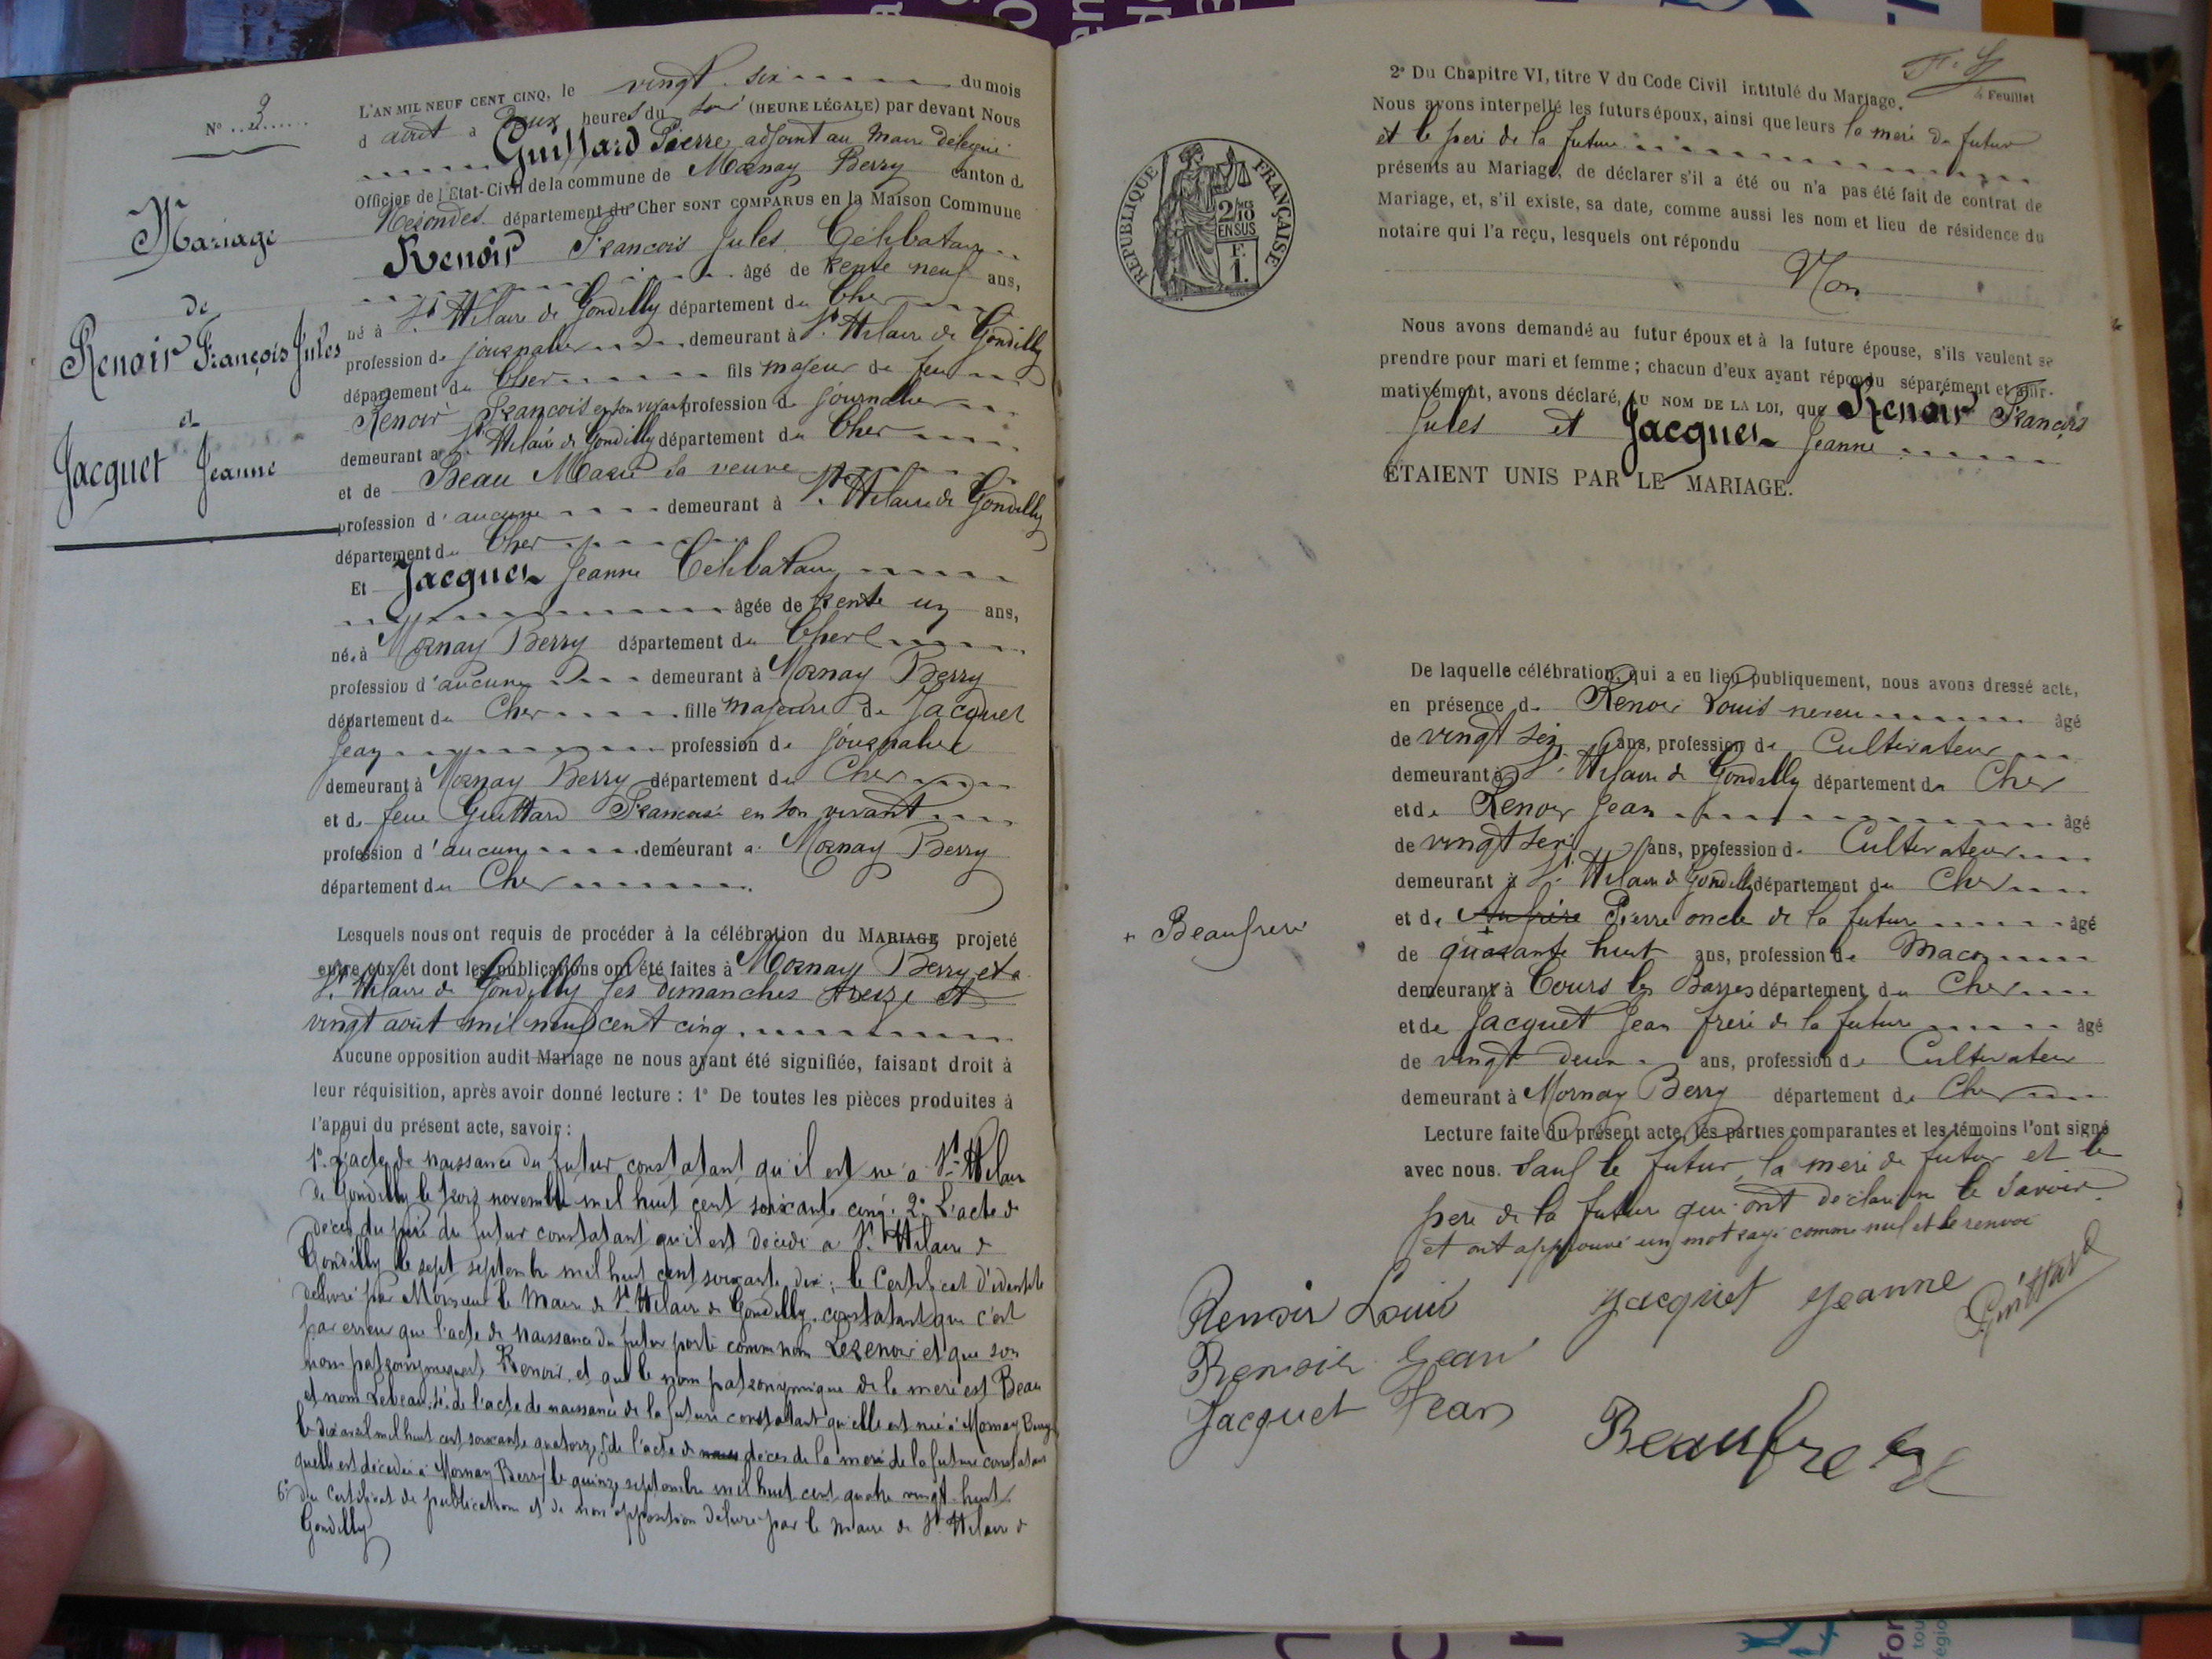 N° 3
Mariage
de
Renoir François Jules
et
Jacquet Jeanne
L'AN MIL NEUF CENT CINQ, le vingt six du mois
d août à deux heures du soir (HEURE LÉGALE) par devant Nous
Guittard Pierre adjoint au Maire délégué
Officier de l'Etat-Civil de la commune de Mornay Berry canton de
Nérondes département du Cher SONT COMPARUS en la Maison Commune
Renoir Francois Jules Célibataire
âgé de trente neuf ans,
né à St Hilaire de Gondilly département du Cher
profession de journalier demeurant à St Hilaire de Gondilly
département du Cher fils majeur de feu
Renoir Francois en son vivant profession de journalier
demeurant à St Hilaire de Gondilly département du Cher
et de Beau Marie sa veuve
profession d'aucune demeurant à St Hilaire de Gondilly
département du Cher
Et Jacquet Jeanne Célibataire
âgée de trente un ans,
née à Mornay Berry département du Cher
profession d'aucune demeurant à Mornay Berry
département du Cher fille majeure de Jacquet
Jean profession de journalier
demeurant à Mornay Berry département du Cher
et de feue Guittard Francoise en son vivant
profession d'aucune demeurant à Mornay Berry
département du Cher
Lesquels nous ont requis de procéder à la célébration du MARIAGE projeté
entre eux et dont les publications ont été faites à Mornay Berry et a
St Hilaire de Gondilly les dimanches treize et
vingt août mil neuf cent cinq
Aucune opposition audit Mariage ne nous ayant été signifiée, faisant droit à
leur réquisition, après avoir donné lecture : 1° De toutes les pièces produites à
l'appui du présent acte, savoir :
1° L'acte de naissance du futur constatant qu'il est né à St Hilaire
de Gondilly le trois novembre mil huit cent soixante cinq. 2° L'acte de
décès du père du futur constatant qu'il est décédé a St Hilaire de
Gondilly le sept septembre mil huit cent soixante dix ; le Certificat d'identité
délivré par Monsieur le Maire de St Hilaire de Gondilly constatant que c'est
par erreur que l'acte de naissance du futur porte comme nom Lerenoir et que son
nom patronymique est Renoir et que le nom patronymique de la mère est Beau
et non Lebeau. de l'acte de naissance de la future constatant qu'elle est née à Mornay Berry
le dix avril mil huit cent soixante quatorze, de l'acte de décès de la mère de la future constatant
qu'elle est décédée à Mornay Berry le quinze septembre mil huit cent quatre vingt-huit
6° du Certificat de publication et de non opposition délivré par le maire de St Hilaire de
Gondilly
Feuillet
2° Du Chapitre VI, titre V du Code Civil intitulé du Mariage.
Nous avons interpellé les futurs époux, ainsi que leurs la mère du futur
et le père de la future
présents au Mariage, de déclarer s'il a été ou n'a pas été fait de contrat de
Mariage, et, s'il existe, sa date, comme aussi les nom et lieu de résidence du
notaire qui l'a reçu, lesquels ont répondu
Non
RÉPUBLIQUE FRANÇAISE
2/10 MES
EN SUS
F.
1.
Nous avons demandé au futur époux et à la future épouse, s'ils veulent se
prendre pour mari et femme ; chacun d'eux ayant répondu séparément et affir-
mativement, avons déclaré, AU NOM DE LA LOI, que Renoir Francois
Jules et Jacquet Jeanne
ETAIENT UNIS PAR LE MARIAGE.
De laquelle célébration, qui a eu lieu publiquement, nous avons dressé acte,
en présence de Renoir Louis neveu âgé
de vingt six ans, profession de Cultivateur
demeurant à St Hilaire de Gondilly département du Cher
et de Renoir Jean âgé
de vingt six ans, profession de Cultivateur
demeurant à St Hilaire de Gondilly département du Cher
et de Pierre oncle de la future âgé
+ Beaufrere
de quarante huit ans, profession de Macon
demeurant à Cours les Barres département du Cher
et de Jacquet Jean frère de la future âgé
de vingt deux ans, profession de Cultivateur
demeurant à Mornay Berry département du Cher
Lecture faite du présent acte, les parties comparantes et les témoins l'ont signé
avec nous. Sauf le futur, la mère du futur et le
père de la future qui ont déclaré ne le savoir.
et ont approuvé un mot rayé comme nul et le renvoi
Renoir Louis Jacquet Jeanne Guittard
Renoir Jean
Jacquet Jean Beaufrere